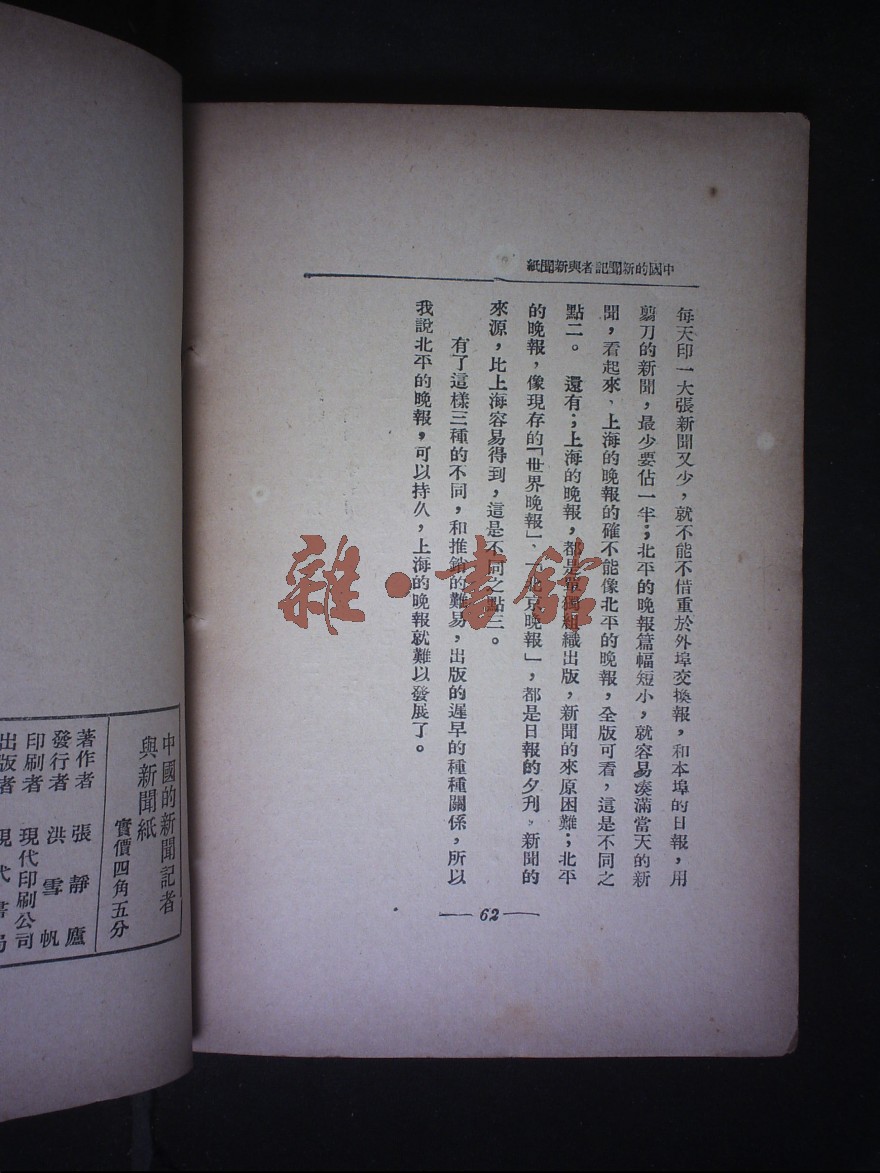 中國的新聞記者與新聞紙
每天印一大張新聞又少，就不能不借重於外埠交換報，和本埠的日報，用
翦刀的新聞，最少要佔一半；北平的晚報篇幅短小，就容易湊滿當天的新
聞，看起來、上海的晚報的確不能像北平的晚報，全版可看，這是不同之
點二。　還有；上海的晚報，都是單獨組織出版，新聞的來原困難；北平
的晚報，像現存的「世界晚報」、「北京晚報」，都是日報的夕刋，新聞的
來源，比上海容易得到，這是不同之點三。
有了這樣三種的不同，和推銷的難易，出版的遲早的種種關係，所以
我說北平的晚報，可以持久，上海的晚報就難以發展了。
62
雜·書館
中國的新聞記者
與新聞紙
實價四角五分
著作者　張靜廬
發行者　洪雪帆
印刷者　現代印刷公司
出版者　現代書局